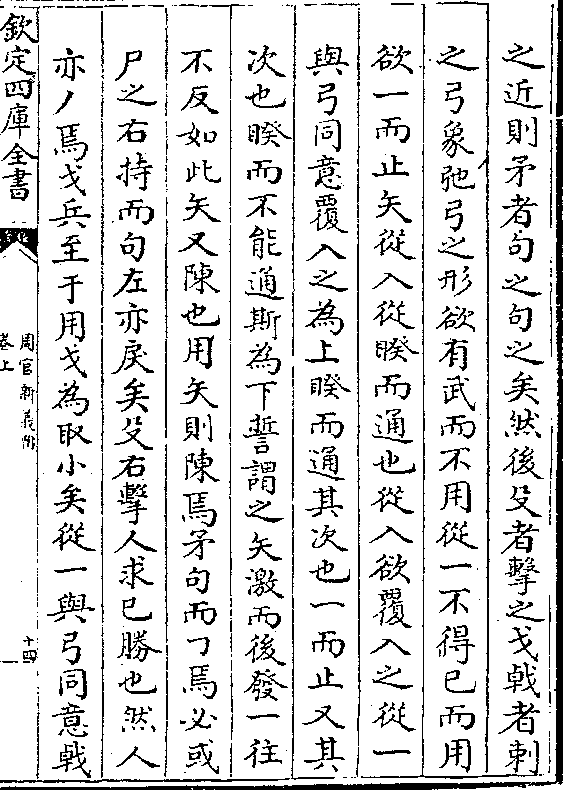 之近則矛者句之句之矣然後殳者擊之戈戟者刺
之弓象弛弓之形欲有武而不用從一不得已而用
欲一而止矢從入從睽而通也從入欲覆入之從一
與弓同意覆入之為上睽而通其次也一而止又其
次也睽而不能通斯為下誓謂之矢激而後發一往
不反如此矢又陳也用矢則陳焉矛句而㇆焉必或
尸之右持而句左亦戾矣殳右擊人求已勝也然人
亦丿焉戈兵至于用戈為取小矣從一與弓同意戟
欽定四庫全書
周官新義附
卷上
十四